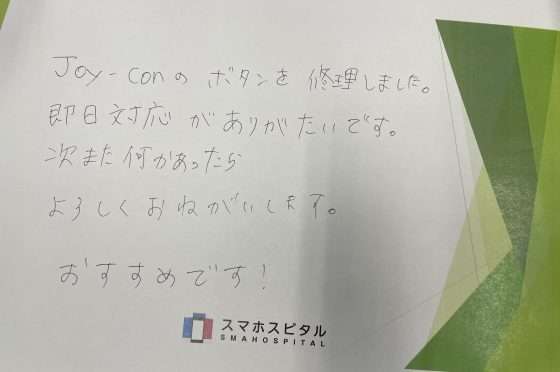 Joy-conのボタンを修理しました。
即日対応がありがたいです。
次また何かあったら
よろしくおねがいします。
おすすめです!
スマホスピタル
SMAHOSPITAL